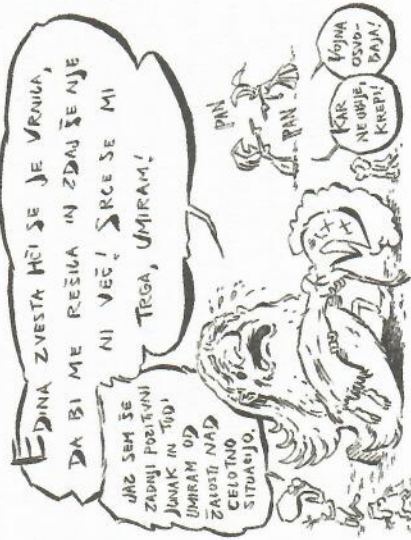 EDINA ZVESTA HČI SE JE VRNILA,
DA BI ME REŠILA IN ZDAJ ŠE NJE
NI VEČ! SRCE SE MI
TRGA, UMIRAM!
JAZ SEM ŠE
ZADNJI POZITIVNI
JUNAK IN TUDI
UMIRAM OD
ŽALOSTI NAD
CELOTNO
SITUACIJO.
PAN
PAN
KAR
NE UBIJE,
KREPI!
VOJNA
OSVO-
BAJA!